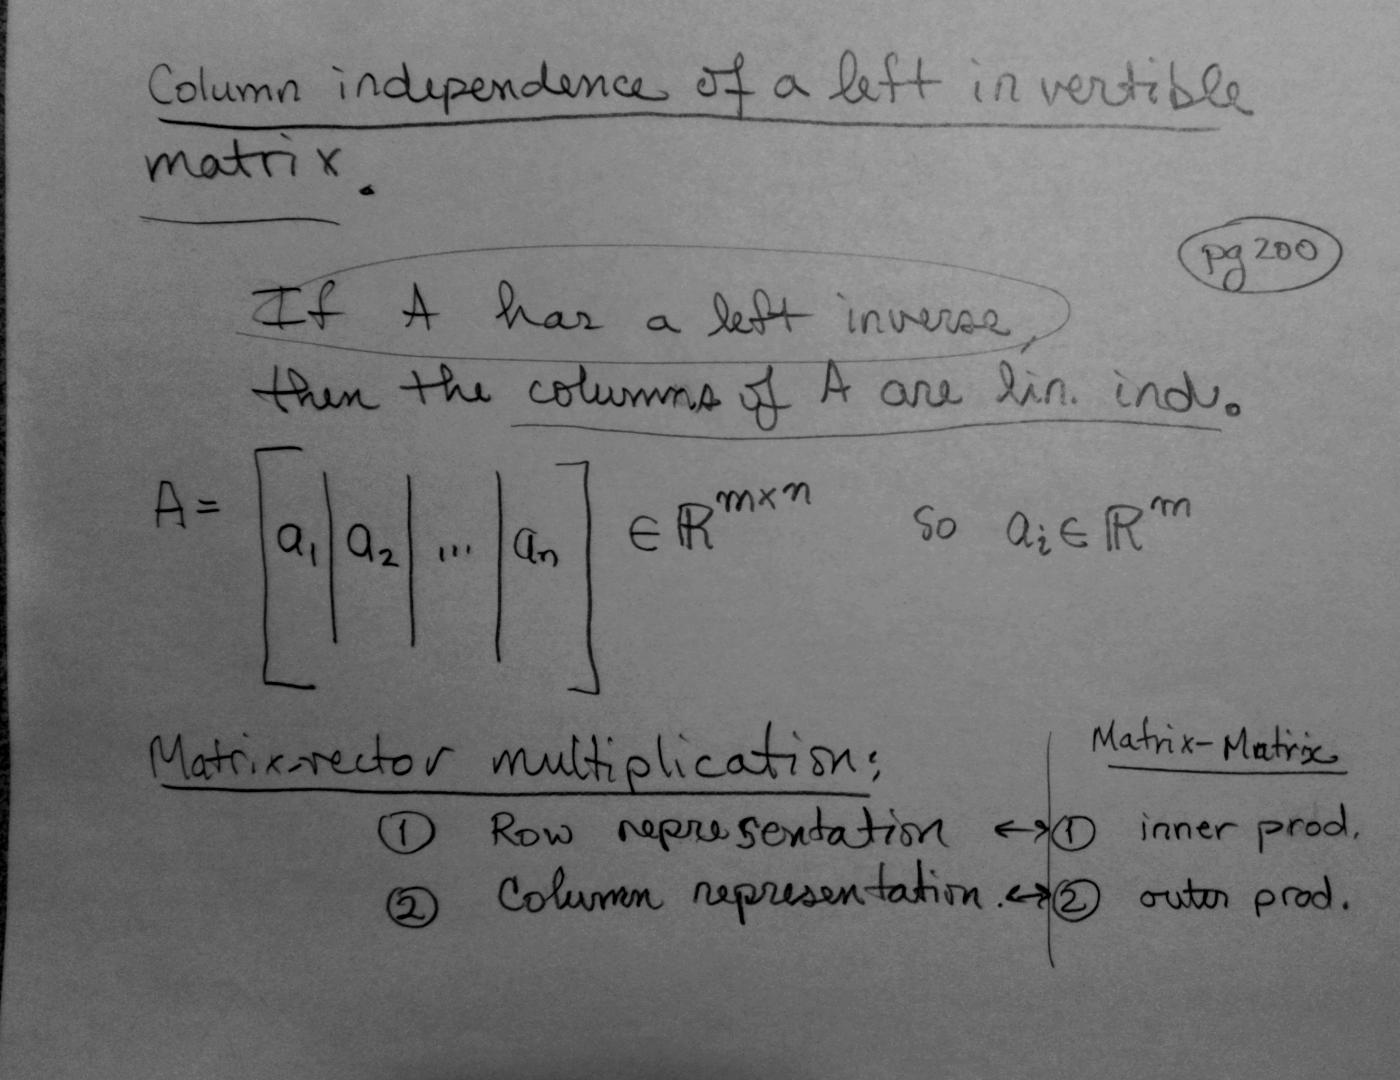 Column independence of a left invertible
matrix.
pg 200
If A has a left inverse,
then the columns of A are lin. ind.
A = [a₁ | a₂ | ... | aₙ] ∈ ℝ^{m×n} so aᵢ ∈ ℝ^m
Matrix-vector multiplication: Matrix-Matrix
① Row representation ↔ ① inner prod.
② Column representation. ↔ ② outer prod.